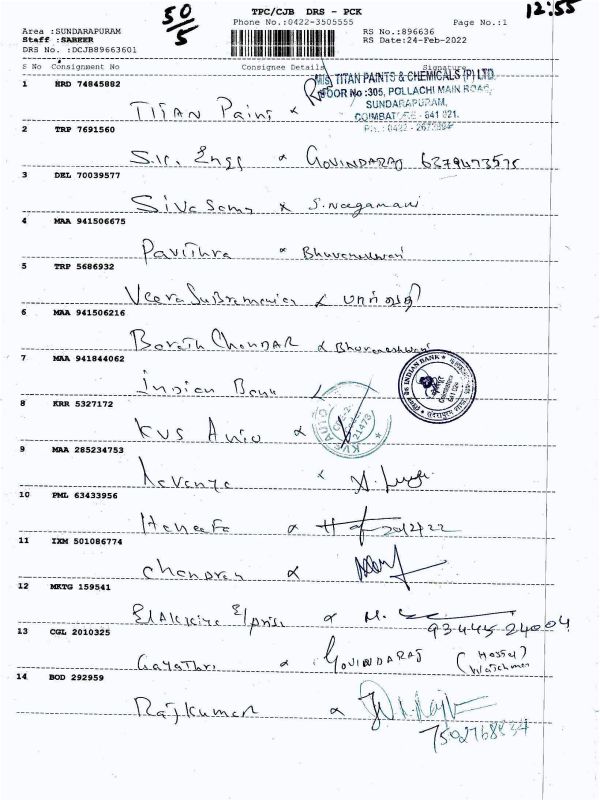 50/5
12:55
TPC/CJB DRS - PCK
Phone No.:0422-3505555
Page No.:1
Area :SUNDARAPURAM
Staff :SABEER
DRS No. :DCJB89663601
RS No.:896636
RS Date:24-Feb-2022
S No Consignment No Consignee Details Signature
1 HRD 74845882
M/S. TITAN PAINTS & CHEMICALS (P) LTD.
DOOR No :305, POLLACHI MAIN ROAD,
SUNDARAPURAM,
COIMBATORE - 641 021.
TITAN Paint x
2 TRP 7691560
S.K. Engg x GOVINDARAJ 6379473575
3 DEL 70039577
Sivasamy x S. Naagamani
4 MAA 941506675
Pavithra x Bhuvaneshwari
5 TRP 5686932
Veera Subramanian x பார்வதி
6 MAA 941506216
Barath Chandar x Bhuvaneshwari
7 MAA 941844062
Indian Bank
INDIAN BANK
8 KRR 5327172
KVS Auto x
9 MAA 285234753
Lavanya x
10 PML 63433956
Haneefa x
11 IXM 501086774
Chandran x
12 MKTG 159541
Elakkiya E/prise x M.
93445 24004
13 CGL 2010325
Gayathri x GOVINDARAJ (Hostel Watchman
14 BOD 292959
Rajkumar x
7502768834